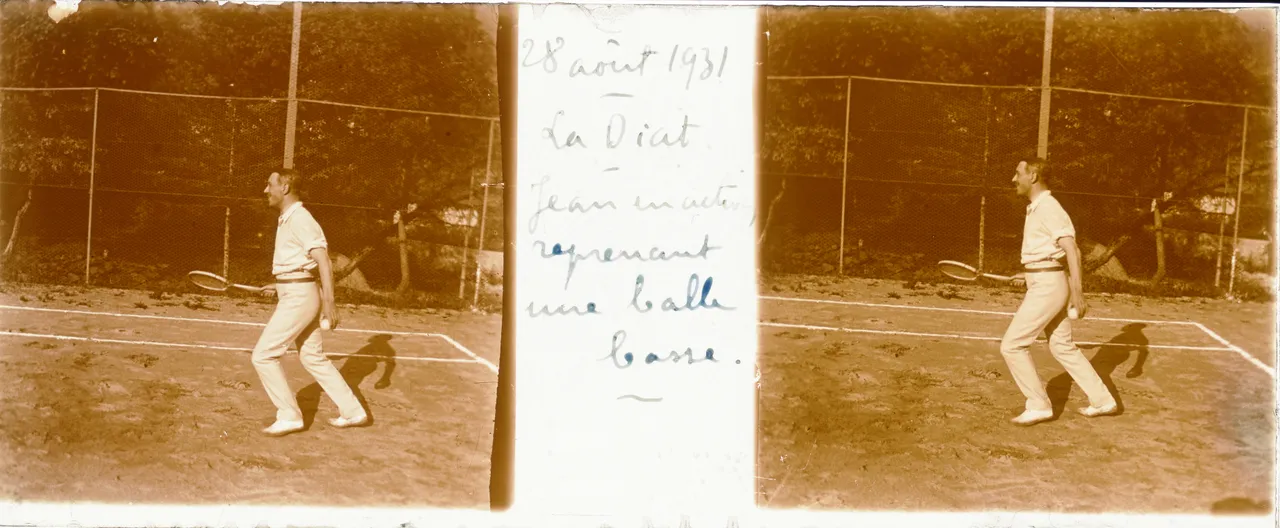 28 août 1931
La Diat
Jean en action,
reprenant
une balle
basse.